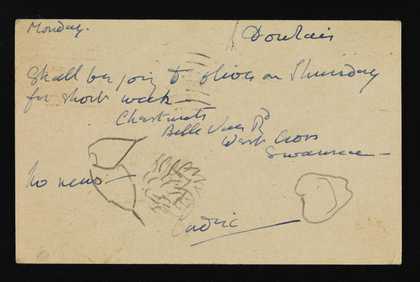 Monday.
Dowlais
Shall be going to Olives on Thursday
for short week —
Chestnuts
Belle Vue Rd
West Cross
Swansea —
No news —
Cedric